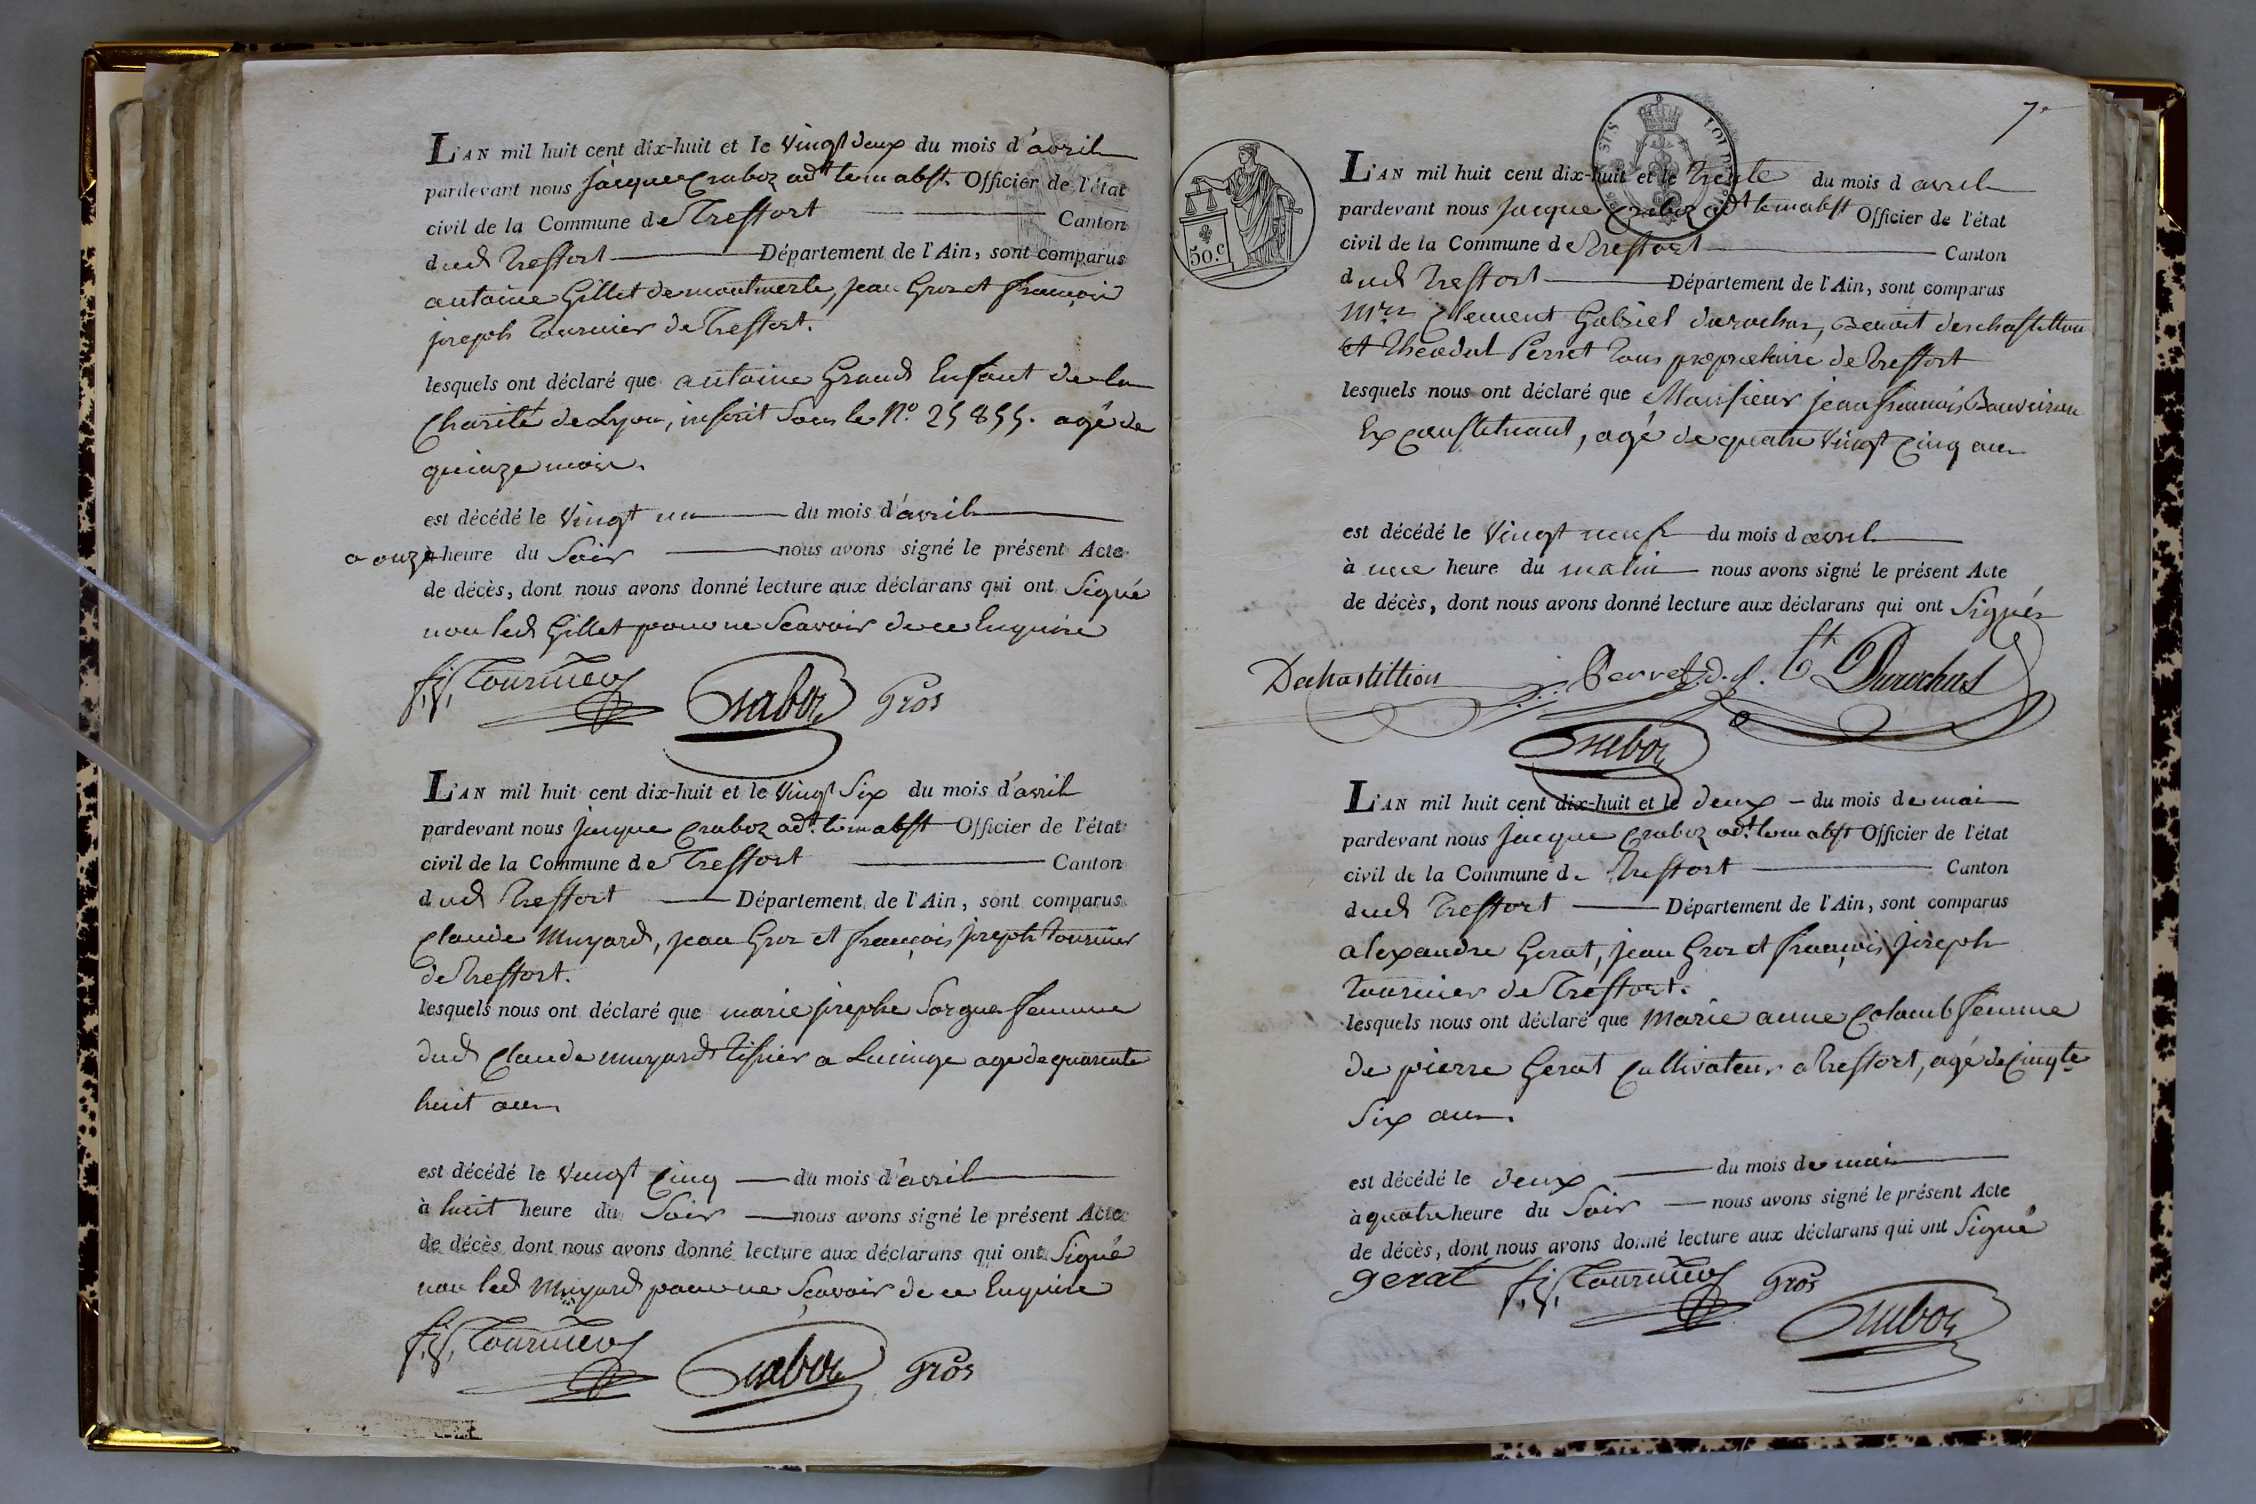 L'AN mil huit cent dix-huit et le vingt deux du mois d'avril
pardevant nous jacque Craboz adt. lem abst. Officier de l'état
civil de la Commune de Treffort Canton
dud Treffort Département de l'Ain, sont comparus
antoine Gillet de montmerle, jean Gros et françois
joseph Tournier de Treffort.
lesquels ont déclaré que antoine Grand Enfant de la
Charité de Lyon, inscrit Sous le N.o 25855. agé de
quinze mois.
est décédé le vingt un du mois d'avril
a onze heure du Soir nous avons signé le présent Acte
de décès, dont nous avons donné lecture aux déclarans qui ont Signé
non led Gillet pour ne Scavoir de ce Enquire
f. j. Tournier Craboz Gros
L'AN mil huit cent dix-huit et le vingt Six du mois d'avril
pardevant nous jacque Craboz adt. lem abst Officier de l'état
civil de la Commune de Treffort Canton
dud Treffort Département de l'Ain, sont comparus
Claude Muyard, jean Gros et françois joseph tournier
de Treffort.
lesquels nous ont déclaré que marie josephe Sorgue femme
dud Claude muyard Tissier a Lucinge age de quarente
huit ans
est décédé le vingt Cinq du mois d'avril
à huit heure du Soir nous avons signé le présent Acte
de décès dont nous avons donné lecture aux déclarans qui ont Signé
non led Muyard pour ne Sçavoir de ce Enquire
f. j. Tournier Craboz Gros
7
50.c
L'AN mil huit cent dix-huit et le Trente du mois d avril
pardevant nous Jacque Craboz adt lem abst Officier de l'état
civil de la Commune de Treffort Canton
dud Treffort Département de l'Ain, sont comparus
Mrs Clement Gabriel durochas, Benoit deschastillon
et Theodul Perret Tous propriétaire de Treffort
lesquels nous ont déclaré que Monsieur jean françois Bouveiron
Ex constituant, agé de quatre vingt Cinq ans
est décédé le vingt neuf du mois d avril
à une heure du matin nous avons signé le présent Acte
de décès, dont nous avons donné lecture aux déclarans qui ont Signés
Dechastillion Perret d. f. Durochas
Craboz
L'AN mil huit cent dix-huit et le deux du mois de mai
pardevant nous jacque Craboz adt. lem abst Officier de l'état
civil de la Commune de Treffort Canton
dud Treffort Département de l'Ain, sont comparus
alexandre Gerat, jean Gros et françois joseph
Tournier de Treffort.
lesquels nous ont déclaré que Marie anne Colomb femme
de pierre Gerat Cultivateur a Treffort, agé de Cinqte
Six ans.
est décédé le deux du mois de mai
à quatre heure du Soir nous avons signé le présent Acte
de décès, dont nous avons donné lecture aux déclarans qui ont Signé
gerat f. j. Tournier Gros
Craboz